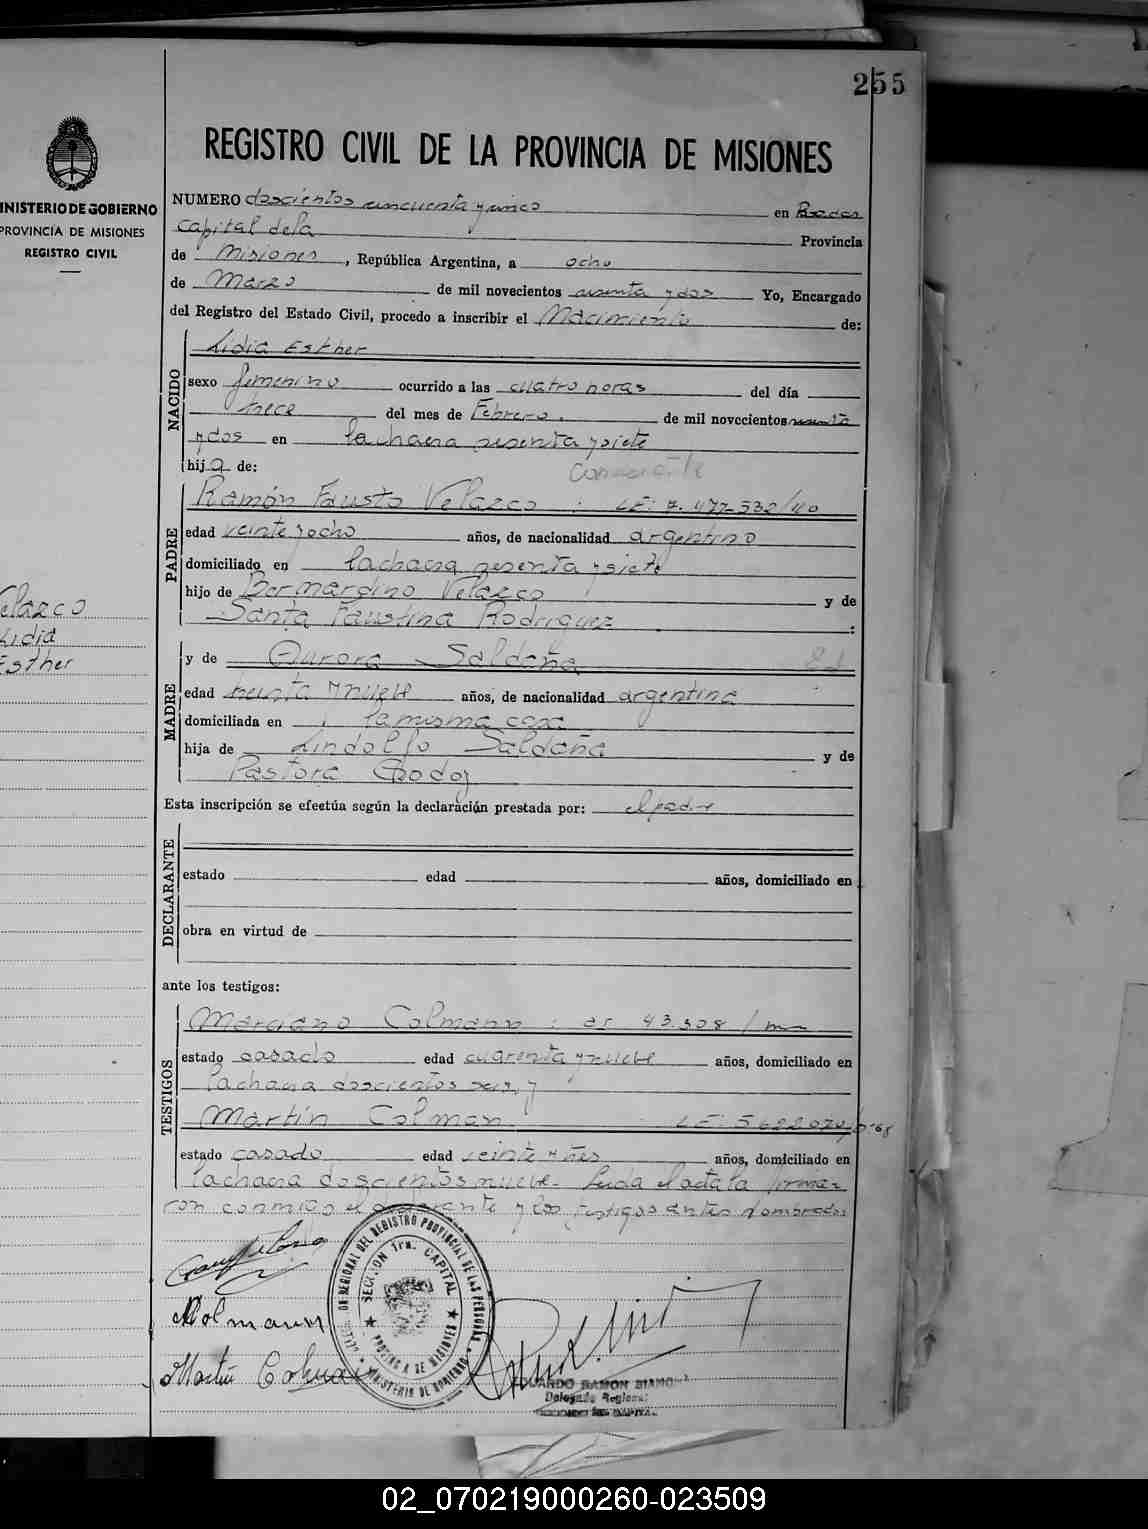 255
REGISTRO CIVIL DE LA PROVINCIA DE MISIONES
MINISTERIO DE GOBIERNO
PROVINCIA DE MISIONES
REGISTRO CIVIL
NUMERO doscientos cincuenta y cinco en Posadas
Capital de la Provincia
de Misiones, República Argentina, a ocho
de Marzo de mil novecientos sesenta y dos Yo, Encargado
del Registro del Estado Civil, procedo a inscribir el Nacimiento de:
NACIDO
Lidia Esther
sexo femenino ocurrido a las cuatro horas del día
trece del mes de Febrero. de mil novecientos sesenta
y dos en la chacra sesenta y siete
hija de:
PADRE
Ramón Fausto Velazco : LE: 7.477.532/40
edad veinte y ocho años, de nacionalidad argentino
domiciliado en la chacra sesenta y siete
hijo de Bernardino Velazco y de
Santa Faustina Rodriguez :
MADRE
y de Aurora Saldaña
edad treinta y nueve años, de nacionalidad argentina
domiciliada en la misma casa
hija de Lindolfo Saldaña y de
Pastora Godoy
Esta inscripción se efectúa según la declaración prestada por: el padre
DECLARANTE
estado edad años, domiciliado en
obra en virtud de
ante los testigos:
TESTIGOS
Marciano Colmann : 43.508
estado casado edad cuarenta y nueve años, domiciliado en
la chacra doscientos seis, y
Martín Colman LE: 5.622.074
estado casado edad veinte y tres años, domiciliado en
la chacra doscientos nueve. Leida el acta la firman
con conmigo el declarante y los testigos antes nombrados
Velazco
Lidia
Esther
Colmann
Martín Colman
REGIONAL DEL REGISTRO PROVINCIAL DE LAS PERSONAS
SECCION 1ra. CAPITAL
PROVINCIA DE MISIONES
MINISTERIO DE GOBIERNO
EDUARDO RAMON
Delegado Regional
02_070219000260-023509